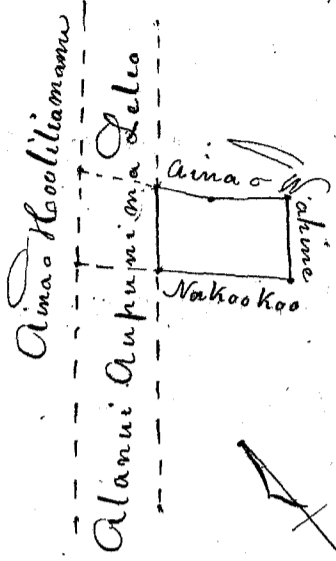 Aina o Hooliliamanu
Alanui Aupuni ma Lelio
Aina o Wahine
Nakookoo